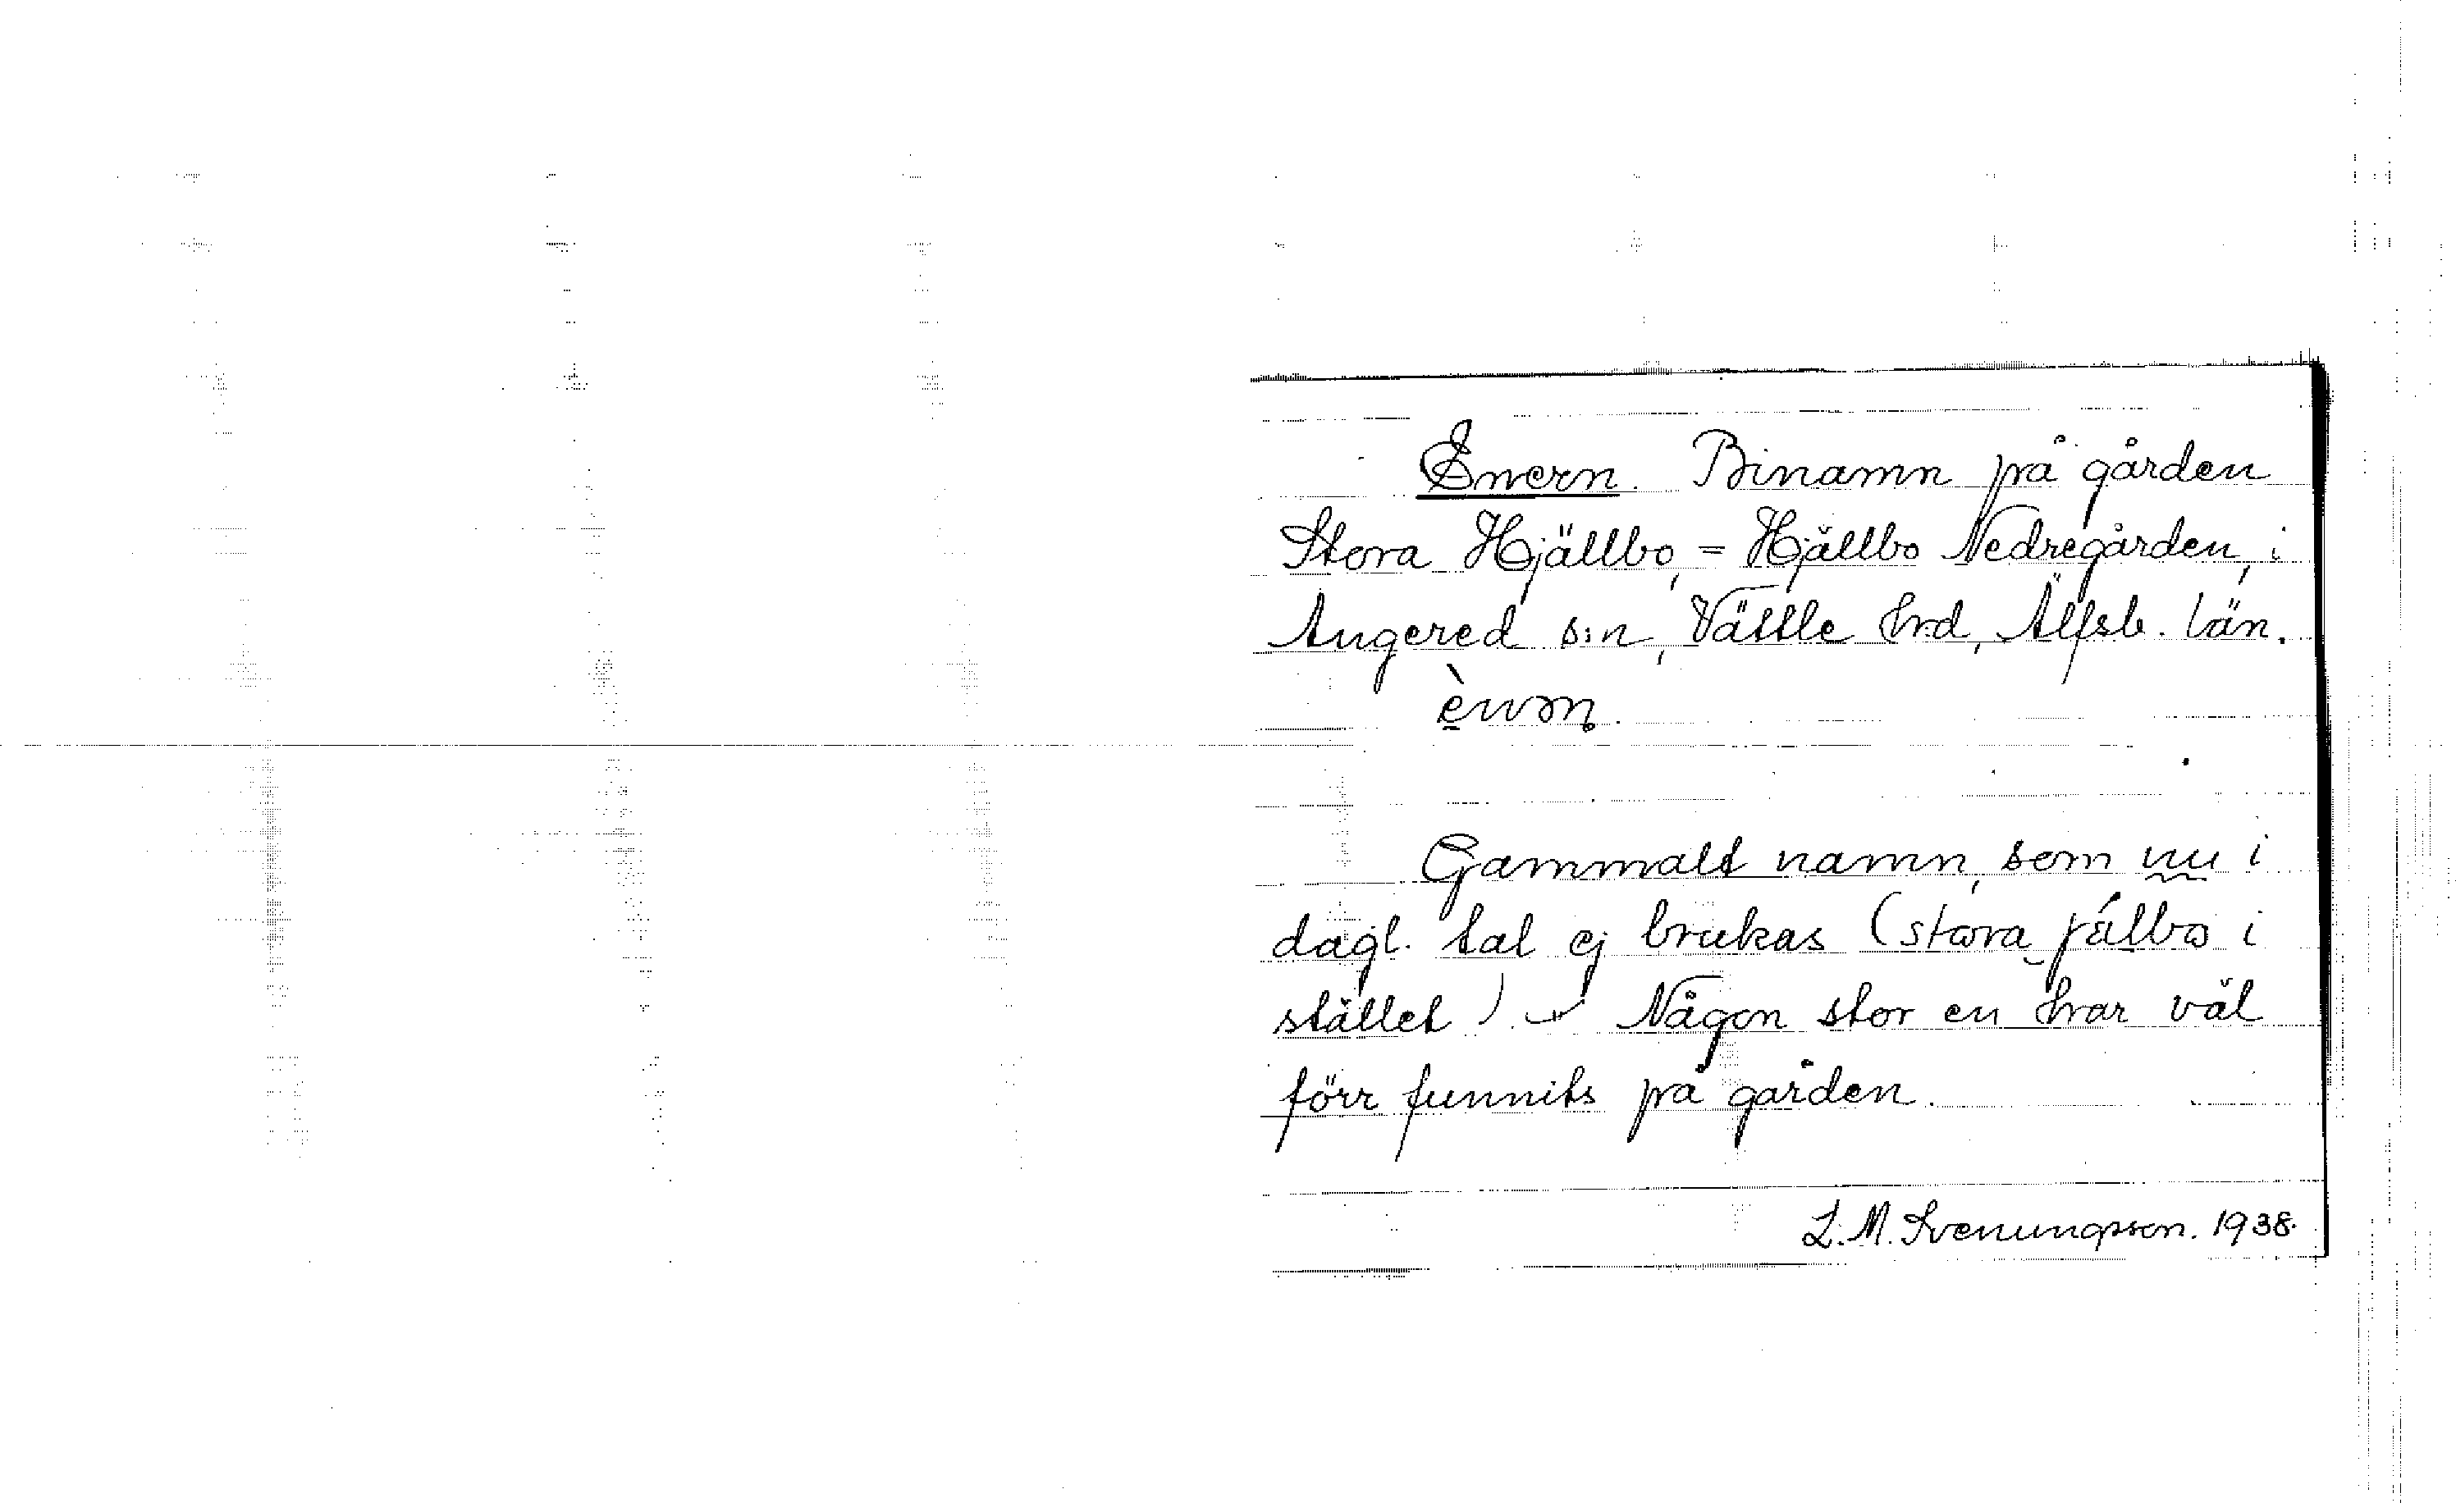 Enern. Binamn på gården
Stora Hjällbo, = Hjällbo Nedregården, i
Angered s:n, Vättle hrd, Älfsb. län.
Gammalt namn, som nu i
dagl. tal ej brukas (stora jälbo i
stället). Någon stor en har väl
förr funnits på gården.
L. M. Svenungsson. 1938.